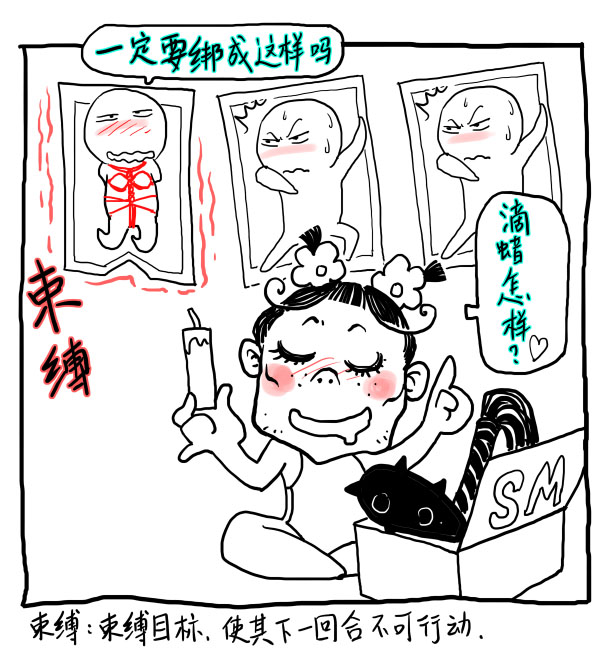 一定要绑成这样吗
滴蜡怎样?♡
束缚
SM
束缚:束缚目标.使其下一回合不可行动.